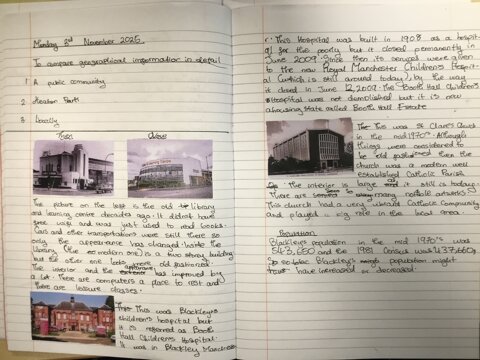 Monday 3rd November 2025
To compare geographical information in detail
1 A public community
2 
3 Locally
Then
Now
The picture on the left is the old library
and learning centre decades ago. It didn't have
free wifi and was just used to read books.
Cars and other transportation were still there so
only the appearance has changed. Inside the
library (the one) is a two storey building
but the other one looks more old fashioned.
The interior and the has improved by
a lot. There are computers a place to rest and
there are leisure classes.
This was Blackley's
children's hospital but
it is referred as Booth
Hall Children's Hospital.
It was in Blackley Manchester
This Hospital was built in 1908 as a hospit-
al for the poorly but it closed permanently in
June 2009. Since then its services were given
to the new Royal Manchester Children's Hospit-
al (which is still around today) by the way
it closed in June 12, 2009. The Booth Hall Children's
Hospital was not demolished but it is now
a housing estate called Booth Hall Estate
This was St Clare's Church
in the mid 1970's. Although
things were considered to
be old fashioned then the
church was a modern well
established Catholic Parish
The interior is large and it still is today.
There are many catholic artists
This church had a very vibrant Catholic Community
and played a big role in the local area.
Population
Blackley's population in the mid 1970's was
543,650 and the 1981 Census was 437,660
So Blackley's population might
have increased or decreased.